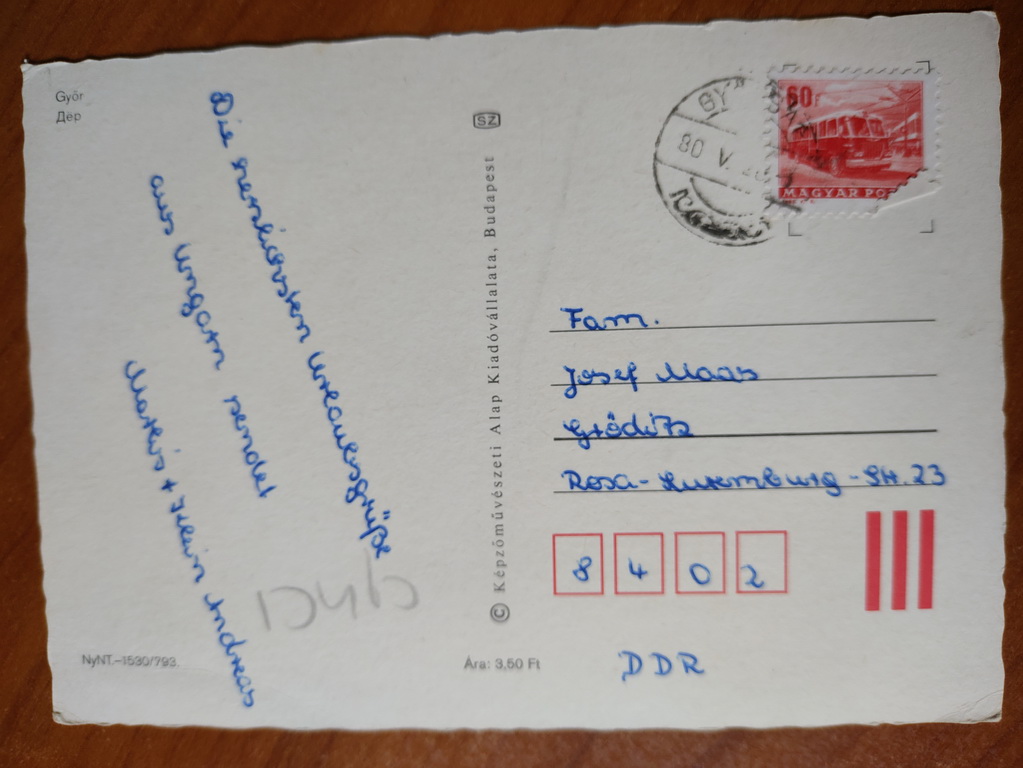 Győr
Дёр
Die herzlichsten Urlaubsgrüße
aus Ungarn sendet
Andreas
NyNT.–1530/793.
SZ
© Képzőművészeti Alap Kiadóvállalata, Budapest
Ára: 3,50 Ft
60f
MAGYAR PO
80 V.
Fam.
Josef Maas
Gröditz
Rosa-Luxemburg-Str. 23
8 4 0 2
DDR